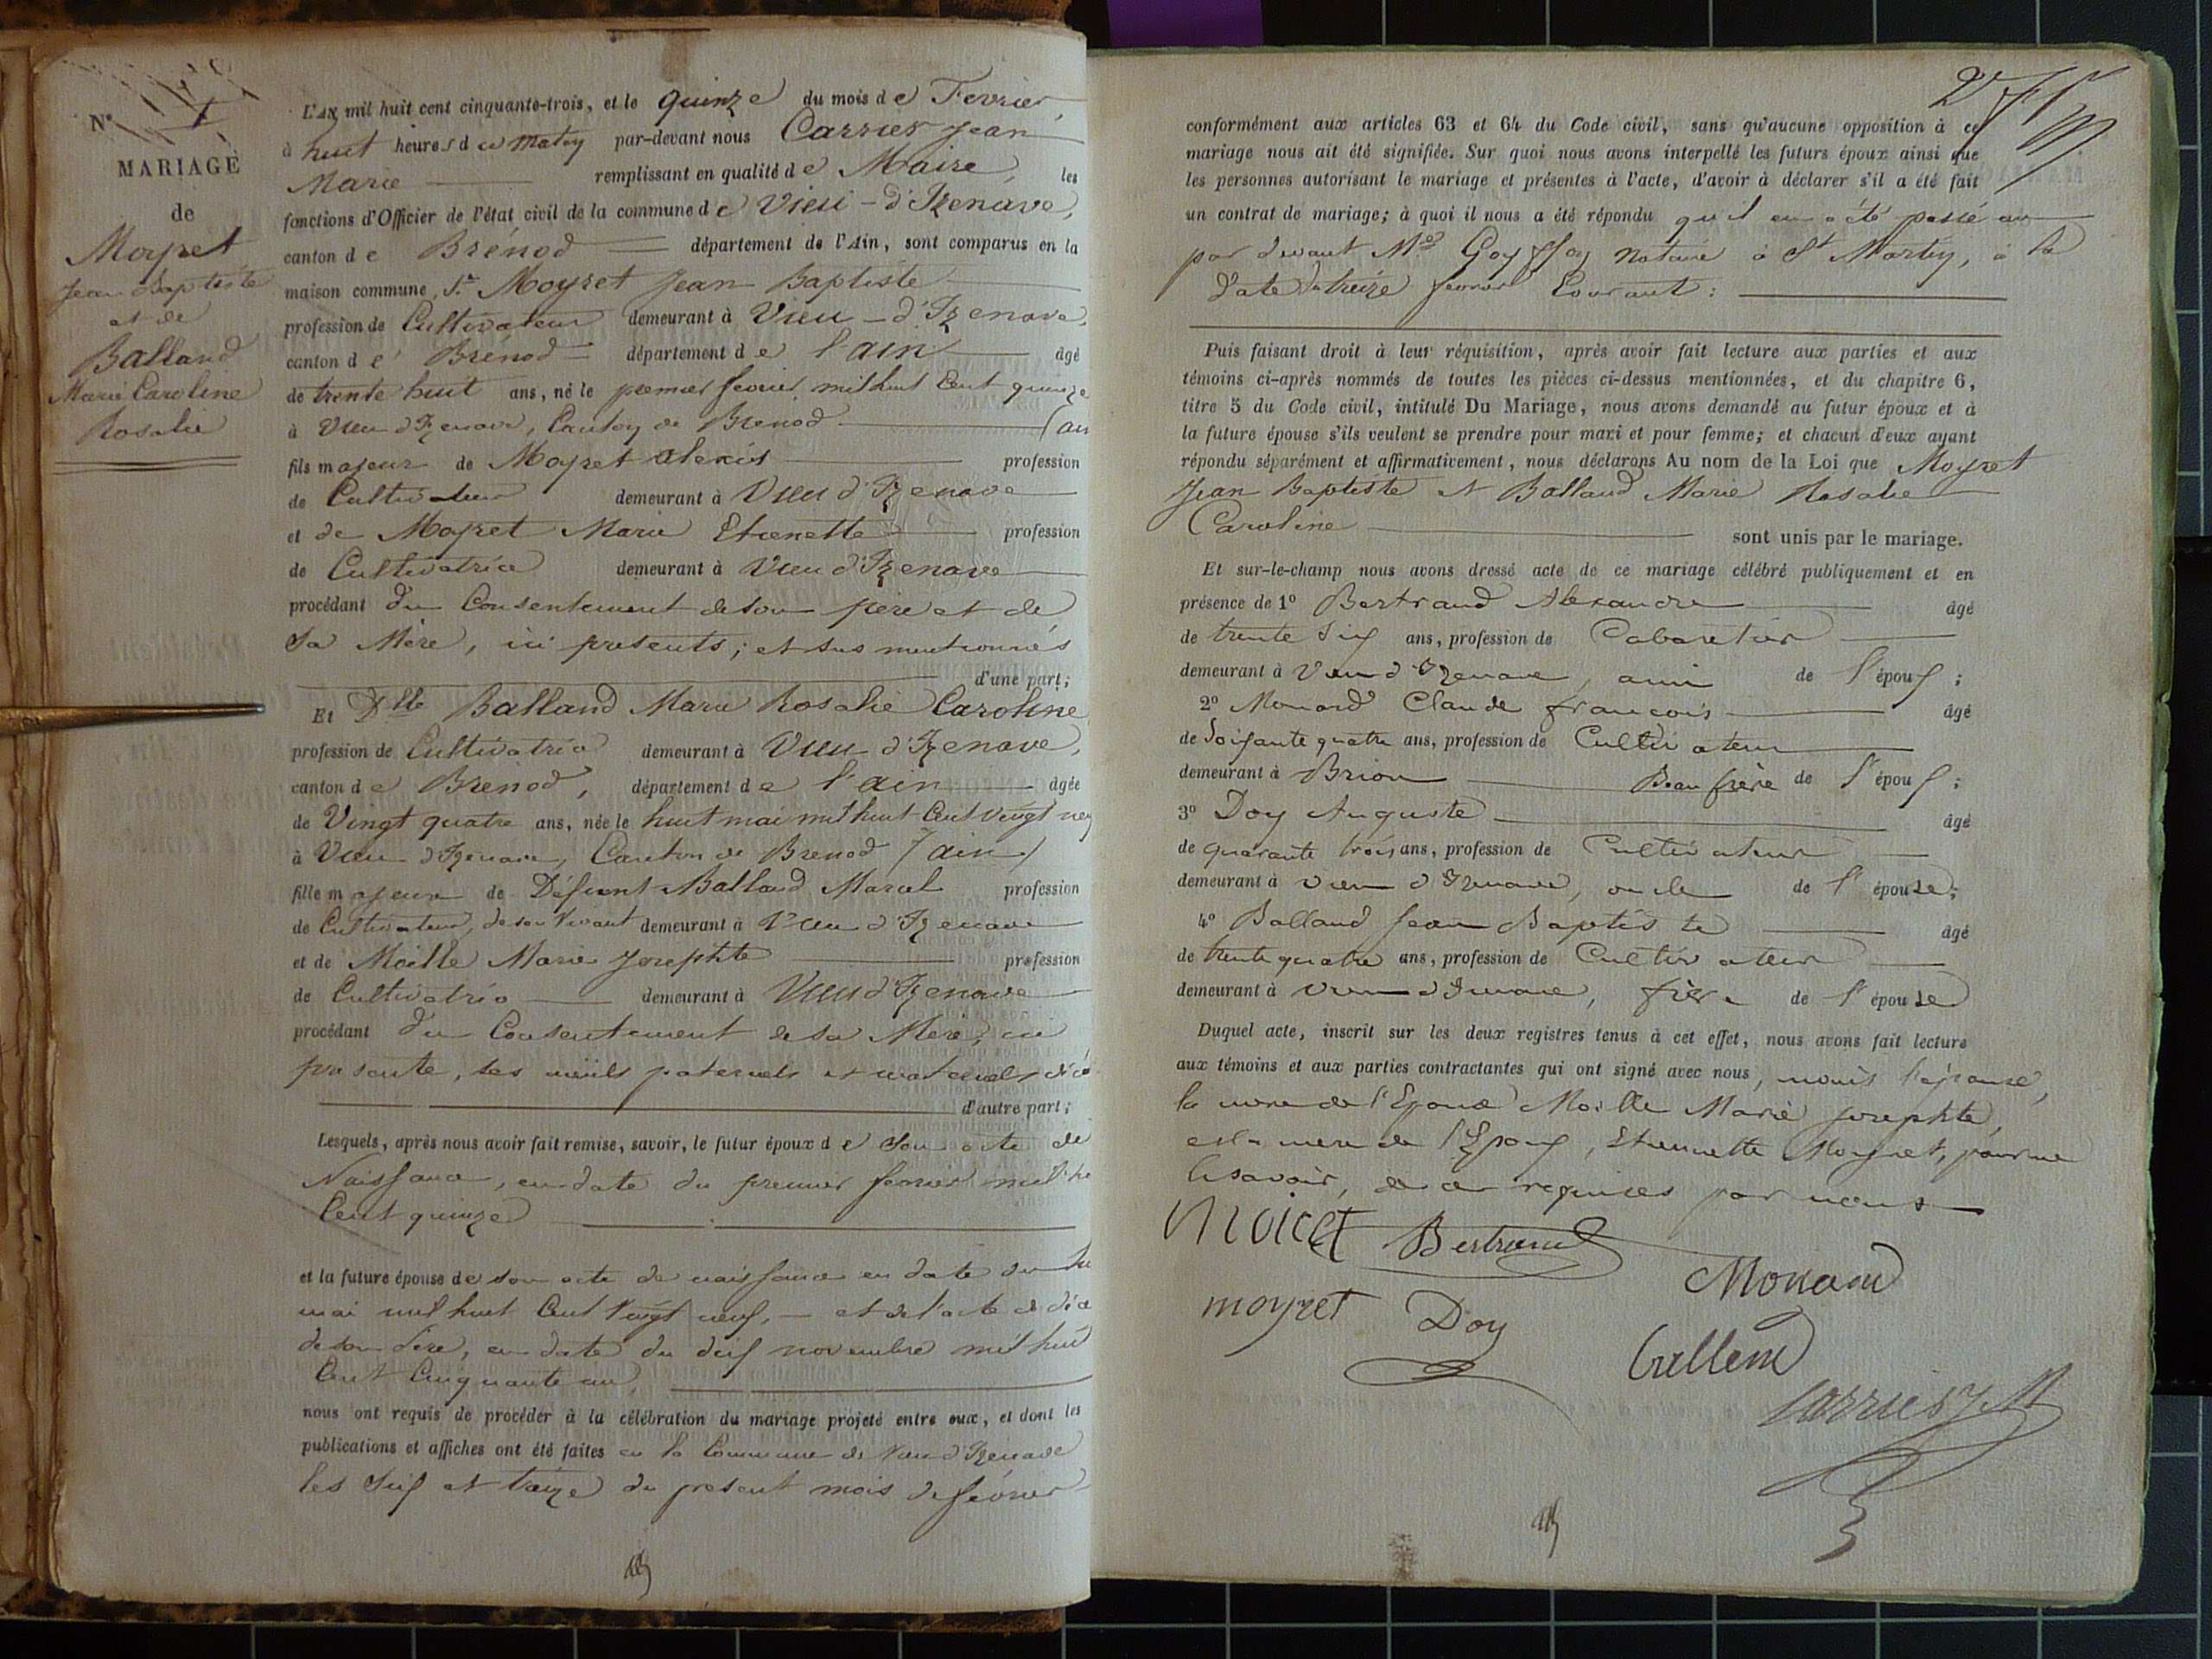 N° 1
MARIAGE
de
Moyret
Jean Baptiste
et de
Balland
Marie Caroline
Rosalie
L'AN mil huit cent cinquante-trois, et le quinze du mois de Fevrier,
à huit heures du matin par-devant nous Carrier Jean
Marie remplissant en qualité de Maire, les
fonctions d'Officier de l'état civil de la commune de Vieu-d'Izenave,
canton de Brénod département de l'Ain, sont comparus en la
maison commune, Sr Moyret Jean Baptiste
profession de Cultivateur demeurant à Vieu-d'Izenave,
canton de Brénod département de l'ain âgé
de trente huit ans, né le premier fevrier mil huit Cent quinze
à Vieu d'Izenave, Canton de Brenod (ain
fils majeur de Moyret alexis profession
de Cultivateur demeurant à Vieu d'Izenave
et de Moyret Marie Etienette profession
de Cultivatrice demeurant à Vieu d'Izenave
procédant du Consentement de son père et de
sa Mère, ici presents; et sus mentionnés
d'une part;
Et Dlle Balland Marie Rosalie Caroline
profession de Cultivatrice demeurant à Vieu d'Izenave,
canton de Brénod, département de l'ain âgée
de Vingt quatre ans, née le huit mai mil huit Cent Vingt neuf
à Vieu d'Izenave, Canton de Brenod (ain)
fille majeure de Défunt Balland Marcel profession
de Cultivateur, de son Vivant demeurant à Vieu d'Izenave
et de Moille Marie Josephte profession
de Cultivatrice demeurant à Vieu d'Izenave
procédant du Consentement de sa Mère, ici
presente, ses aïeuls paternels et maternels décé
d'autre part;
Lesquels, après nous avoir fait remise, savoir, le futur époux de son acte de
Naissance, en date du premier fevrier mil hu
Cent quinze
et la future épouse de son acte de naissance en date du hu
mai mil huit Cent Vingt neuf, et de l'acte de décè
de son Père, en date du dix novembre mil huit
Cent Cinquante un,
nous ont requis de procéder à la célébration du mariage projeté entre eux, et dont les
publications et affiches ont été faites en la Commune de Vieu d'Izenave
les six et treize du present mois de fevrier
conformément aux articles 63 et 64 du Code civil, sans qu'aucune opposition à ce
mariage nous ait été signifiée. Sur quoi nous avons interpellé les futurs époux ainsi que
les personnes autorisant le mariage et présentes à l'acte, d'avoir à déclarer s'il a été fait
un contrat de mariage; à quoi il nous a été répondu qu'il en a été passé un
par devant Me Goyffon Notaire à St Martin, à la
date du treize fevrier Courant:
Puis faisant droit à leur réquisition, après avoir fait lecture aux parties et aux
témoins ci-après nommés de toutes les pièces ci-dessus mentionnées, et du chapitre 6,
titre 5 du Code civil, intitulé Du Mariage, nous avons demandé au futur époux et à
la future épouse s'ils veulent se prendre pour mari et pour femme; et chacun d'eux ayant
répondu séparément et affirmativement, nous déclarons Au nom de la Loi que Moyret
Jean Baptiste et Balland Marie Rosalie
Caroline sont unis par le mariage.
Et sur-le-champ nous avons dressé acte de ce mariage célébré publiquement et en
présence de 1° Bertrand Alexandre âgé
de trente six ans, profession de Cabaretier
demeurant à Vieu d'Izenave, ami de l'époux;
2° Monard Claude françois âgé
de soixante quatre ans, profession de Cultivateur
demeurant à Brion Beau frère de l'époux;
3° Doy Auguste âgé
de quarante trois ans, profession de Cultivateur
demeurant à vieu d'Izenave, oncle de l'épouse;
4° Balland Jean Baptiste âgé
de trente quatre ans, profession de Cultivateur
demeurant à vieu d'Izenave, frère de l'épouse
Duquel acte, inscrit sur les deux registres tenus à cet effet, nous avons fait lecture
aux témoins et aux parties contractantes qui ont signé avec nous, moins l'épouse,
la mere de l'Epouse Moille Marie josephte,
et la mere de l'Epoux, Etiennette Moyret, pour ne
le savoir, de ce requises par nous
Moiret Bertrand
Monard
moyret Doy
Ballend
Carrier J M